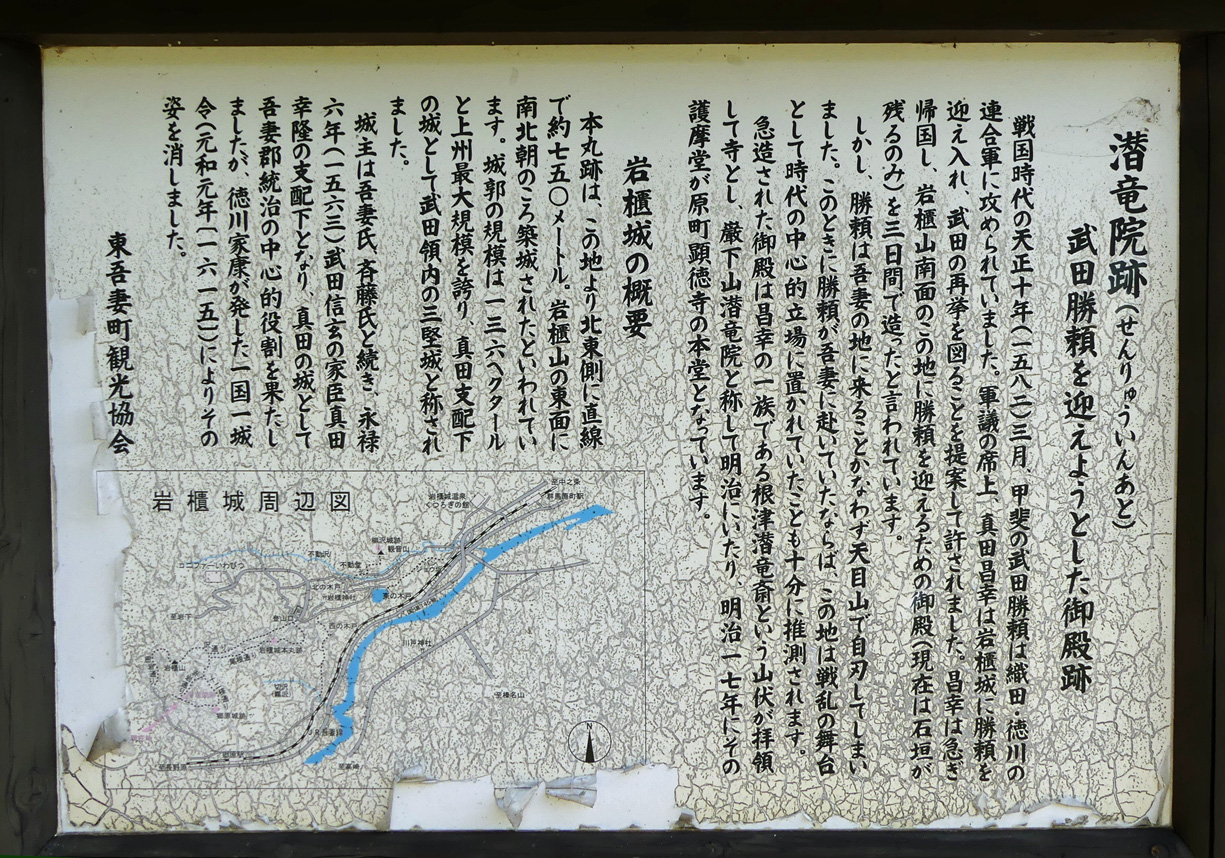 潜竜院跡(せんりゅういんあと)
武田勝頼を迎えようとした御殿跡
戦国時代の天正十年(一五八二)三月、甲斐の武田勝頼は織田・徳川の
連合軍に攻められていました。軍議の席上、真田昌幸は岩櫃城に勝頼を
迎え入れ、武田の再挙を図ることを提案して許されました。昌幸は急ぎ
帰国し、岩櫃山南面のこの地に勝頼を迎えるための御殿(現在は石垣が
残るのみ)を三日間で造ったと言われています。
しかし、勝頼は吾妻の地に来ることかなわず天目山で自刃してしまい
ました。このときに勝頼が吾妻に赴いていたならば、この地は戦乱の舞台
として時代の中心的立場に置かれていたことも十分に推測されます。
急造された御殿は昌幸の一族である根津潜竜斎という山伏が拝領
して寺とし、巌下山潜竜院と称して明治にいたり、明治一七年にその
護摩堂が原町顕徳寺の本堂となっています。
岩櫃城の概要
本丸跡は、この地より北東側に直線
で約七五〇メートル。岩櫃山の東面に
南北朝のころ築城されたといわれてい
ます。城郭の規模は一三六ヘクタール
と上州最大規模を誇り、真田支配下
の城として武田領内の三堅城と称され
ました。
城主は吾妻氏、斉藤氏と続き、永禄
六年(一五六三)武田信玄の家臣真田
幸隆の支配下となり、真田の城として
吾妻郡統治の中心的役割を果たし
ましたが、徳川家康が発した一国一城
令(元和元年〔一六一五〕)によりその
姿を消しました。
東吾妻町観光協会
岩櫃城周辺図
至中之条
群馬原町駅
岩櫃城温泉
くつろぎの館
柳沢城跡
観音山
不動沢
不動堂
コニファーいわびつ
北の木戸
岩櫃神社
東の木戸
至岩下
登山口
西の木戸
川戸神社
岩櫃城本丸跡
岩櫃山
至榛名山
郷原城跡
JR吾妻線
郷原駅
至長野原
至高崎
N